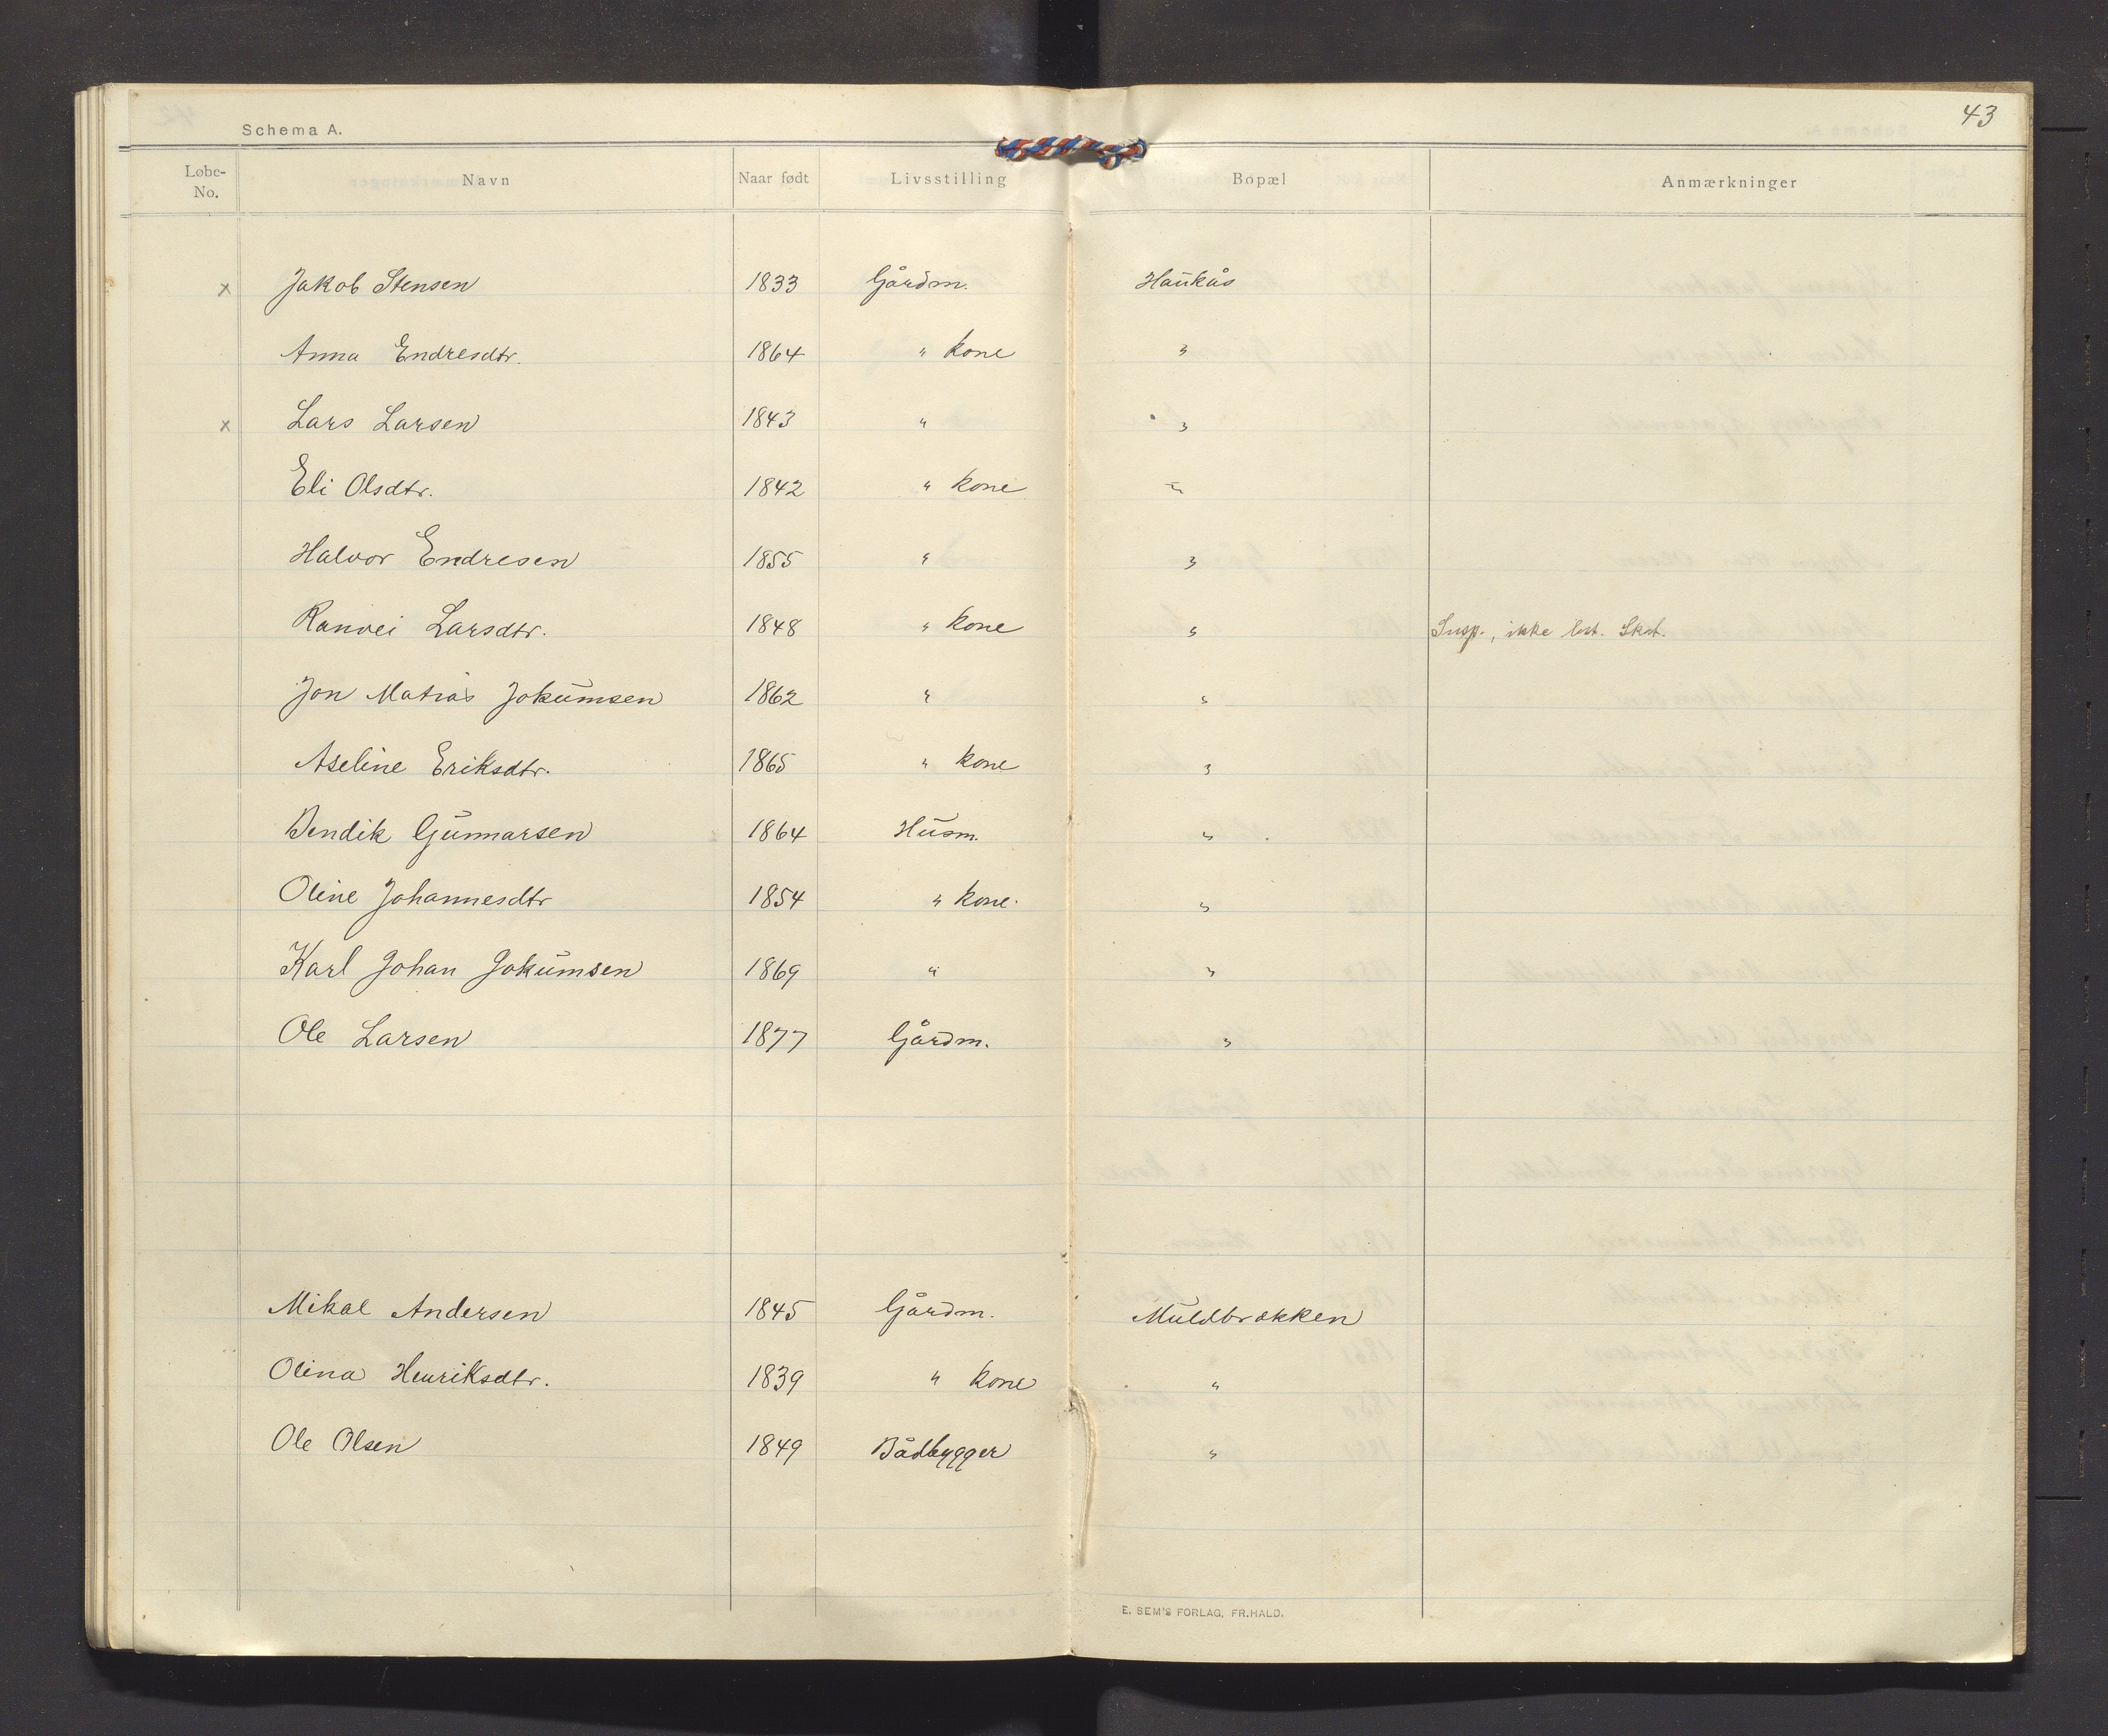 43
Schema A.
Løbe-No. Navn Naar født Livsstilling Bopæl Anmærkninger
x Jakob Stensen 1833 Gårdm. Haukås
Anna Endresdtr. 1864 " kone "
x Lars Larsen 1843 " "
Eli Olsdtr. 1842 " kone "
Halvor Endresen 1855 " "
Ranvei Larsdtr. 1848 " kone " Susp., ikke bet. Skat.
Jon Matias Jokumsen 1862 " "
Aseline Eriksdtr. 1865 " kone "
Bendik Gunnarsen 1864 Husm. "
Oline Johannesdtr 1854 " kone. "
Karl Johan Jokumsen 1869 " "
Ole Larsen 1877 Gårdm. "
Mikal Andersen 1845 Gårdm. Muldbrokken
Olina Henriksdtr. 1839 " kone "
Ole Olsen 1849 Bådbygger "
E. SEM'S FORLAG, FR.HALD.